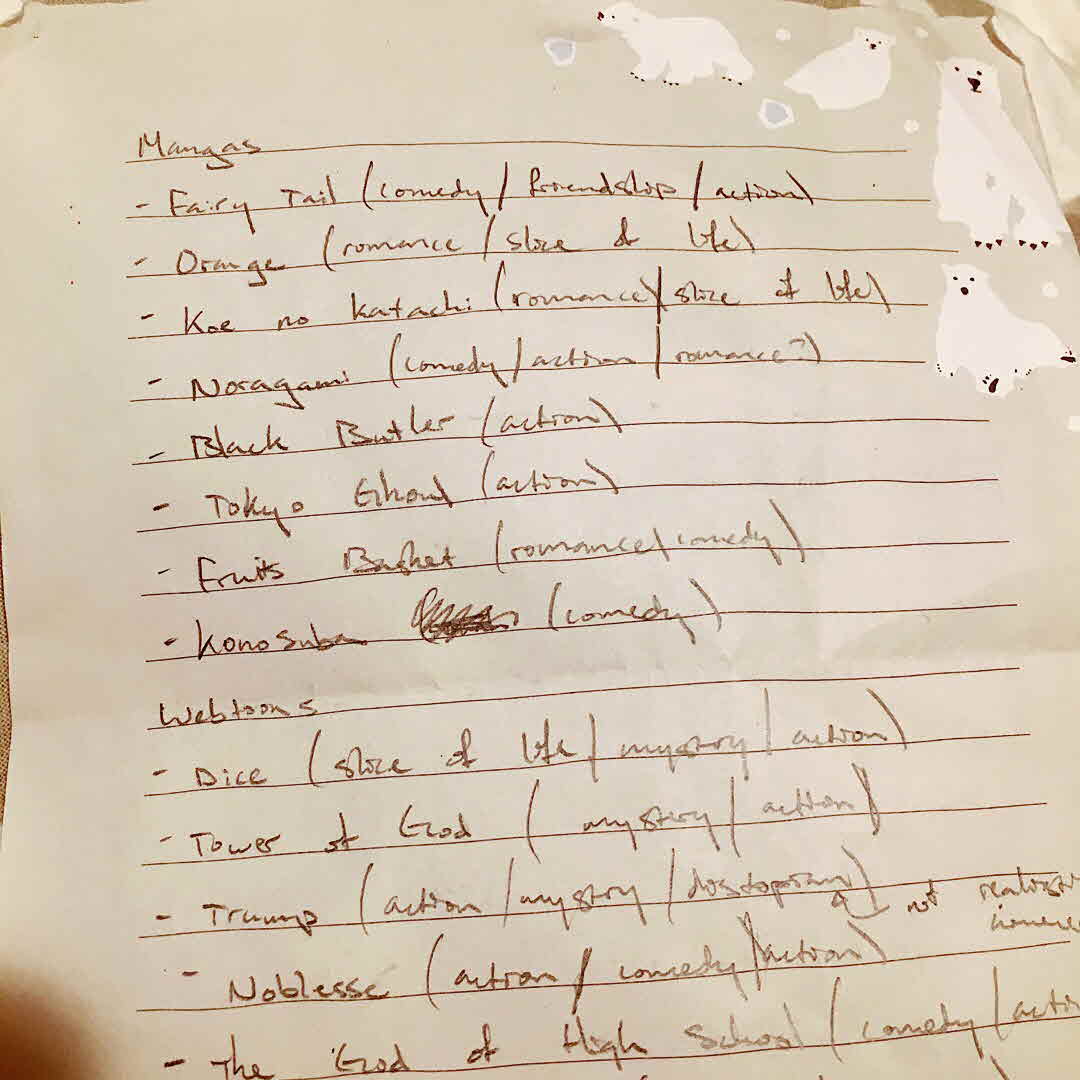 Mangas
- Fairy Tail (comedy / friendship / action)
- Orange (romance / slice of life)
- Koe no katachi (romance / slice of life)
- Noragami (comedy / action / romance?)
- Black Butler (action)
- Tokyo Ghoul (action)
- Fruits Basket (romance / comedy)
- Konosuba (comedy)
Webtoons
- Dice (slice of life / mystery / action)
- Tower of God (mystery / action)
- Trump (action / mystery / dystopian)
not
- Noblesse (action / comedy / action)
- The God of High School (comedy /